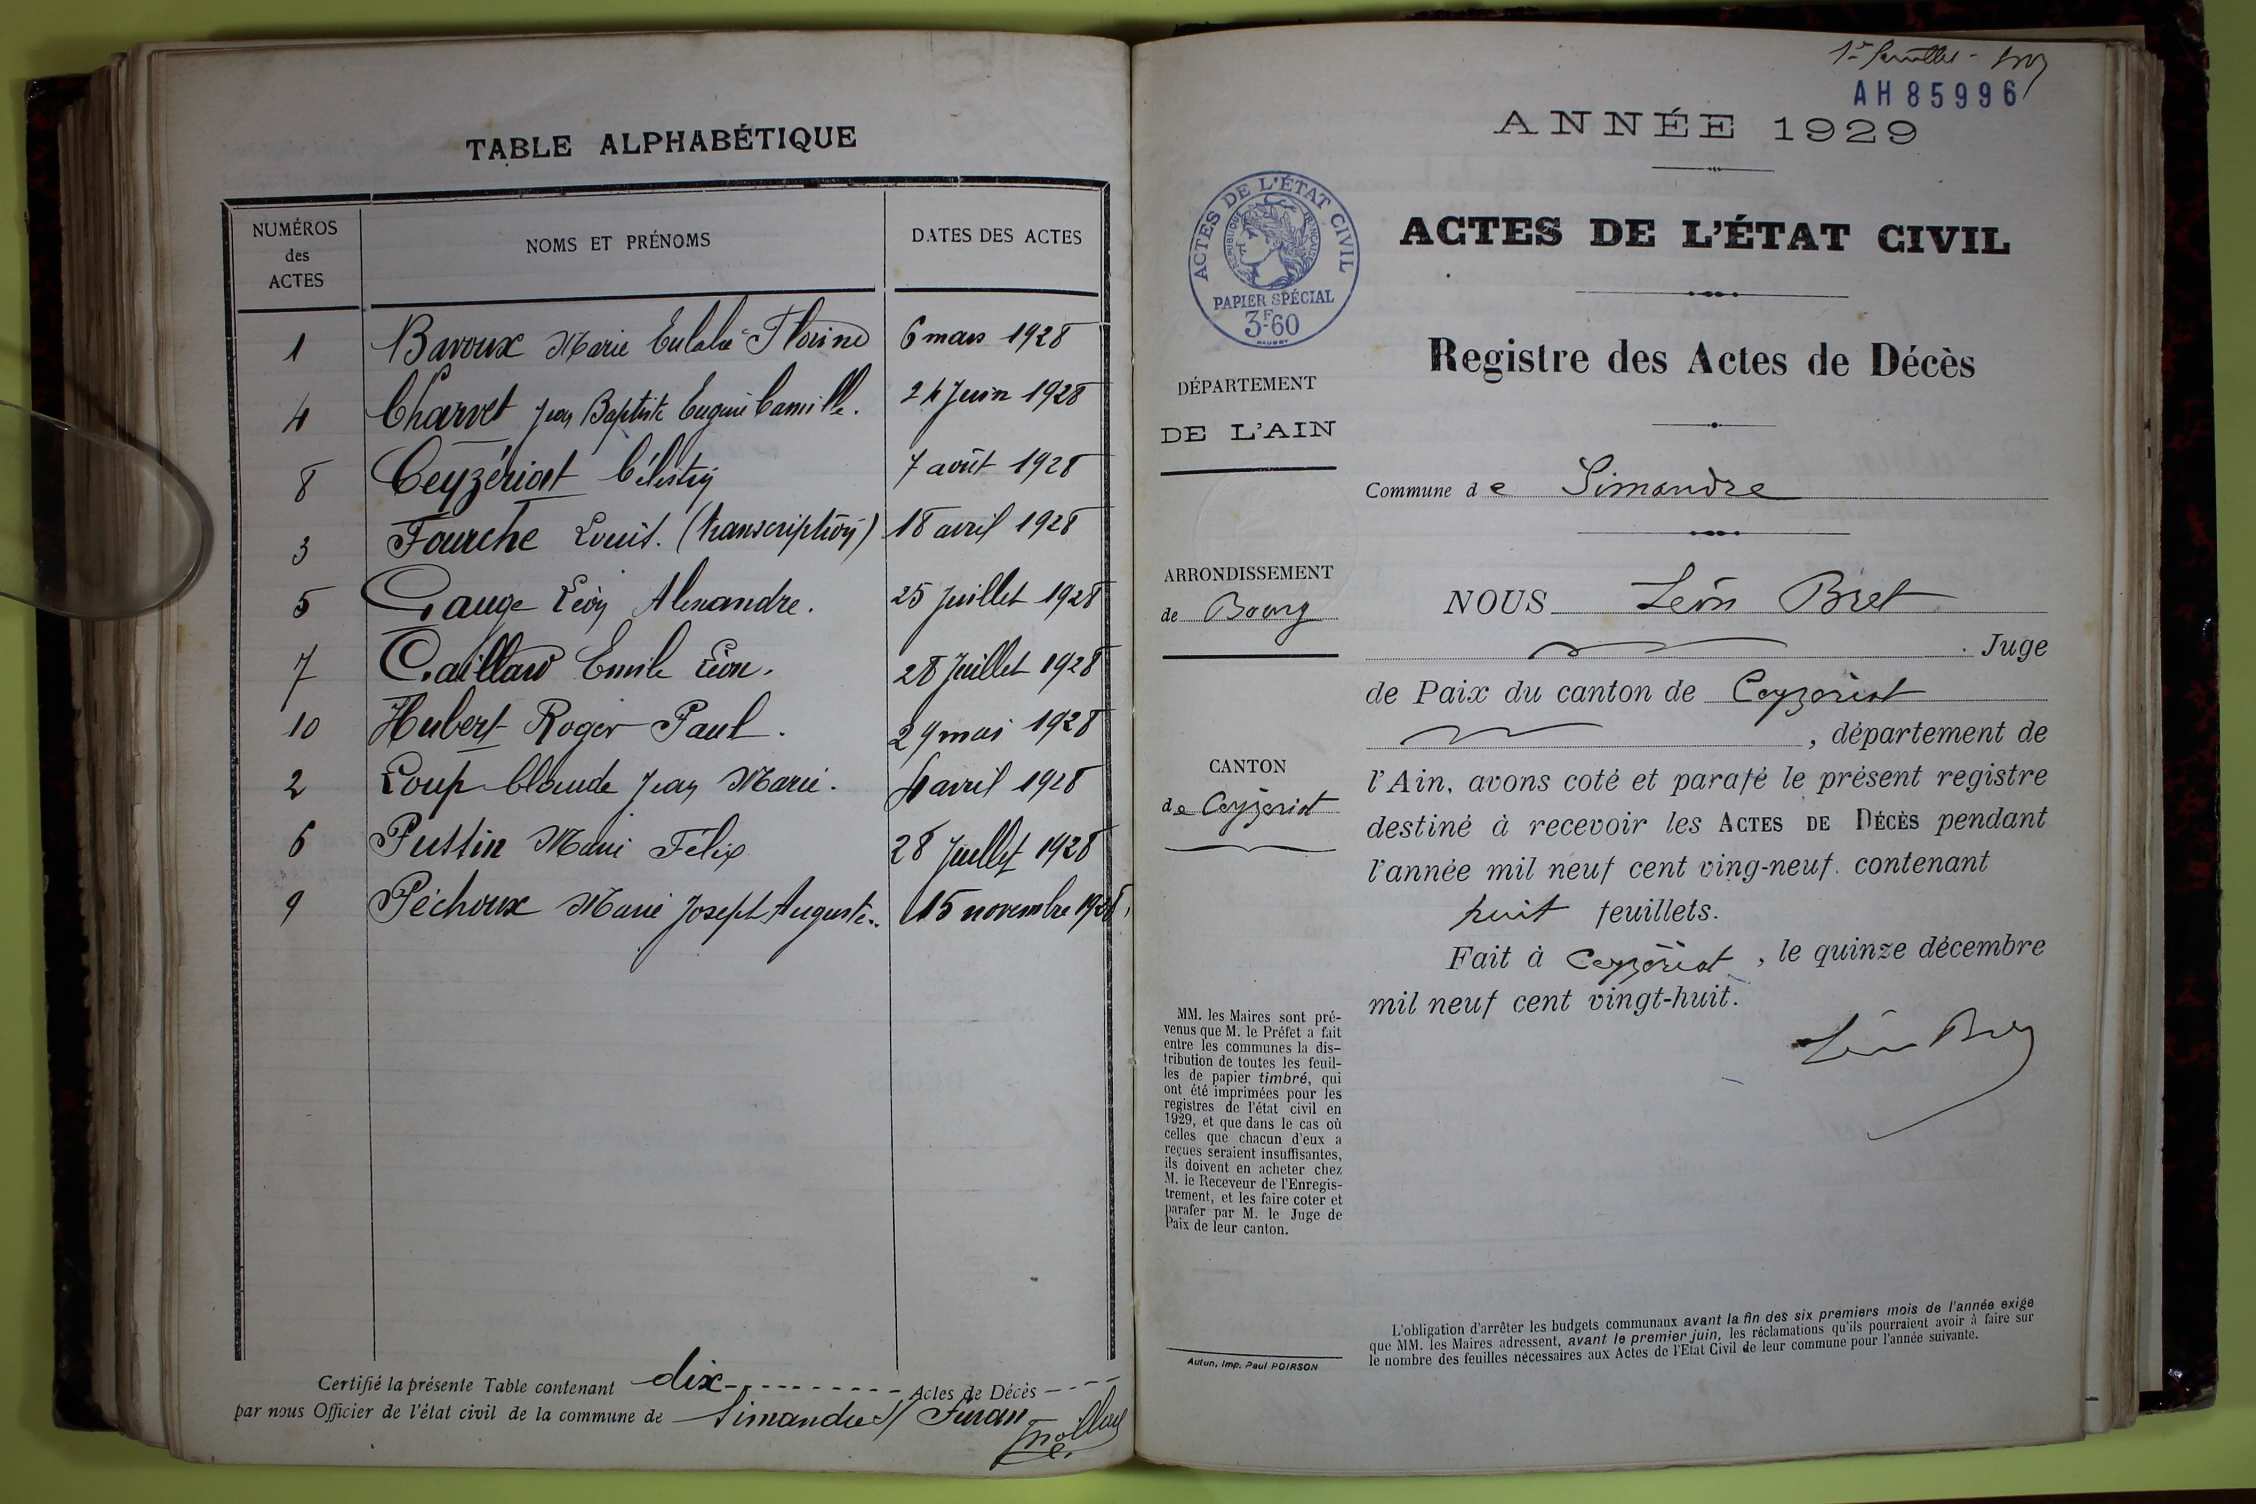 TABLE ALPHABÉTIQUE
NUMÉROS des ACTES
NOMS ET PRÉNOMS
DATES DES ACTES
1 Bavoux Marie Eulalie Florine 6 mars 1928
4 Charvet Jean Baptiste Eugène Camille. 24 Juin 1928
8 Ceyzériat Célestin 7 août 1928
3 Fourche Louis. (transcription) 18 avril 1928
5 Gauge Léon Alexandre. 25 Juillet 1928
7 Gaillard Emile Léon. 28 Juillet 1928
10 Hubert Roger Paul. 29 mai 1928
2 Loup Claude Jean Marie. 4 avril 1928
6 Puttin Marie Félix 28 Juillet 1928
9 Péchoux Marie Joseph Auguste. 15 novembre 1928
Certifié la présente Table contenant dix Actes de Décès
par nous Officier de l'état civil de la commune de Simandre s/ Suran
AH 85996
ANNÉE 1929
ACTES DE L'ÉTAT CIVIL
RÉPUBLIQUE FRANÇAISE
PAPIER SPÉCIAL
3F.60
ACTES DE L'ÉTAT CIVIL
Registre des Actes de Décès
DÉPARTEMENT
DE L'AIN
ARRONDISSEMENT
de Bourg
CANTON
de Ceyzeriat
MM. les Maires sont pré-
venus que M. le Préfet a fait
entre les communes la dis-
tribution de toutes les feuil-
les de papier timbré, qui
ont été imprimées pour les
registres de l'état civil en
1929, et que dans le cas où
celles que chacun d'eux a
reçues seraient insuffisantes,
ils doivent en acheter chez
M. le Receveur de l'Enregis-
trement, et les faire coter et
parafer par M. le Juge de
Paix de leur canton.
Autun, Imp. Paul POIRSON
Commune de Simandre
NOUS Léon Bret
Juge
de Paix du canton de Ceyzériat
, département de
l'Ain, avons coté et parafé le présent registre
destiné à recevoir les ACTES DE DÉCÈS pendant
l'année mil neuf cent ving-neuf. contenant
huit feuillets.
Fait à Ceyzériat, le quinze décembre
mil neuf cent vingt-huit.
Léon Bret
L'obligation d'arrêter les budgets communaux avant la fin des six premiers mois de l'année exige
que MM. les Maires adressent, avant le premier juin, les réclamations qu'ils pourraient avoir à faire sur
le nombre des feuilles nécessaires aux Actes de l'Etat Civil de leur commune pour l'année suivante.